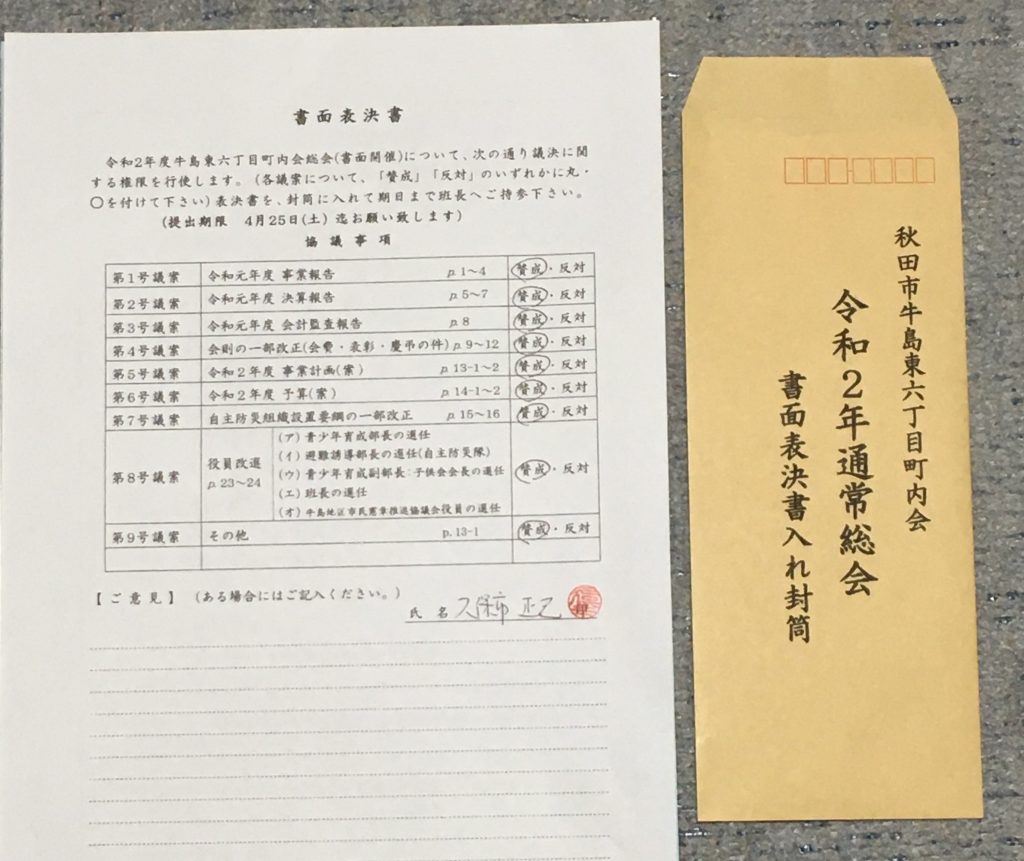 書面表決書
令和2年度牛島東六丁目町内会総会(書面開催)について、次の通り議決に関
する権限を行使します。(各議案について、「賛成」「反対」のいずれかに丸・
〇を付けて下さい)表決書を、封筒に入れて期日まで班長へご持参下さい。
(提出期限 4月25日(土) 迄お願い致します)
協議事項
第1号議案 令和元年度 事業報告 p.1~4 賛成・反対
第2号議案 令和元年度 決算報告 p.5~7 賛成・反対
第3号議案 令和元年度 会計監査報告 p.8 賛成・反対
第4号議案 会則の一部改正(会費・表彰・慶弔の件) p.9~12 賛成・反対
第5号議案 令和2年度 事業計画(案) p.13-1~2 賛成・反対
第6号議案 令和2年度 予算(案) p.14-1~2 賛成・反対
第7号議案 自主防災組織設置要綱の一部改正 p.15~16 賛成・反対
第8号議案 役員改選 p.23~24 賛成・反対
(ア)青少年育成部長の選任
(イ)避難誘導部長の選任(自主防災隊)
(ウ)青少年育成副部長:子供会会長の選任
(エ)班長の選任
(オ)牛島地区市民憲章推進協議会役員の選任
第9号議案 その他 p.13-1 賛成・反対
【ご意見】 (ある場合にはご記入ください。)
氏名 久保市 正己
秋田市牛島東六丁目町内会
令和2年通常総会
書面表決書入れ封筒